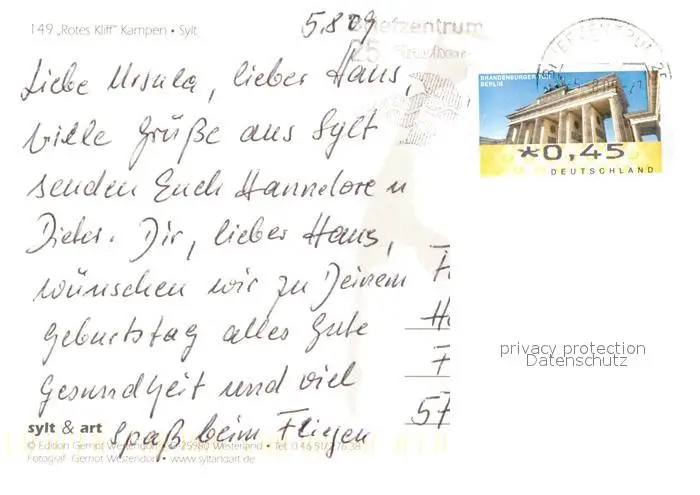 149 „Rotes Kliff" Kampen • Sylt
5.8.09
Briefzentrum
25
BRIEFZENTRUM 25
Liebe Ursula, lieber Hans,
viele Grüße aus Sylt
senden Euch Hannelore u
Dieter. Dir, lieber Hans,
wünschen wir zu Deinem
Geburtstag alles Gute
Gesundheit und viel
Spaß beim Fliegen
BRANDENBURGER TOR
BERLIN
*0,45
DEUTSCHLAND
F
H
F
57
privacy protection
Datenschutz
sylt & art
© Edition Gernot Westendorf • 25980 Westerland • Tel. 0 46 51/2 76 38
Fotograf: Gernot Westendorf • www.syltandart.de